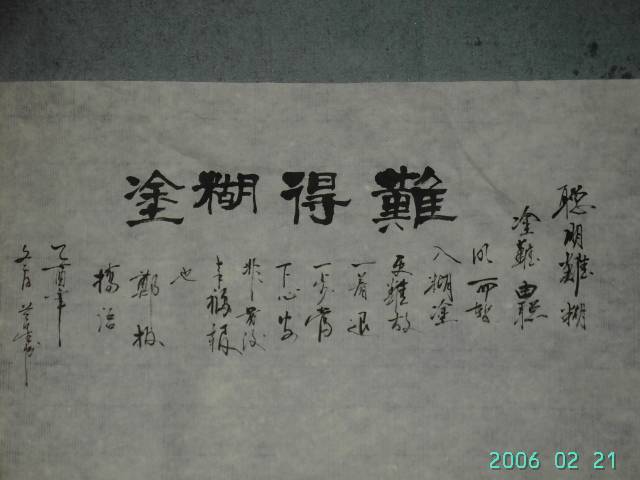 難得糊塗
聰明難糊
塗難由聰
明而轉
入糊塗
更難放
一着退
一步當
下心安
非圖後
来福報
也
鄭板
橋语
乙酉年